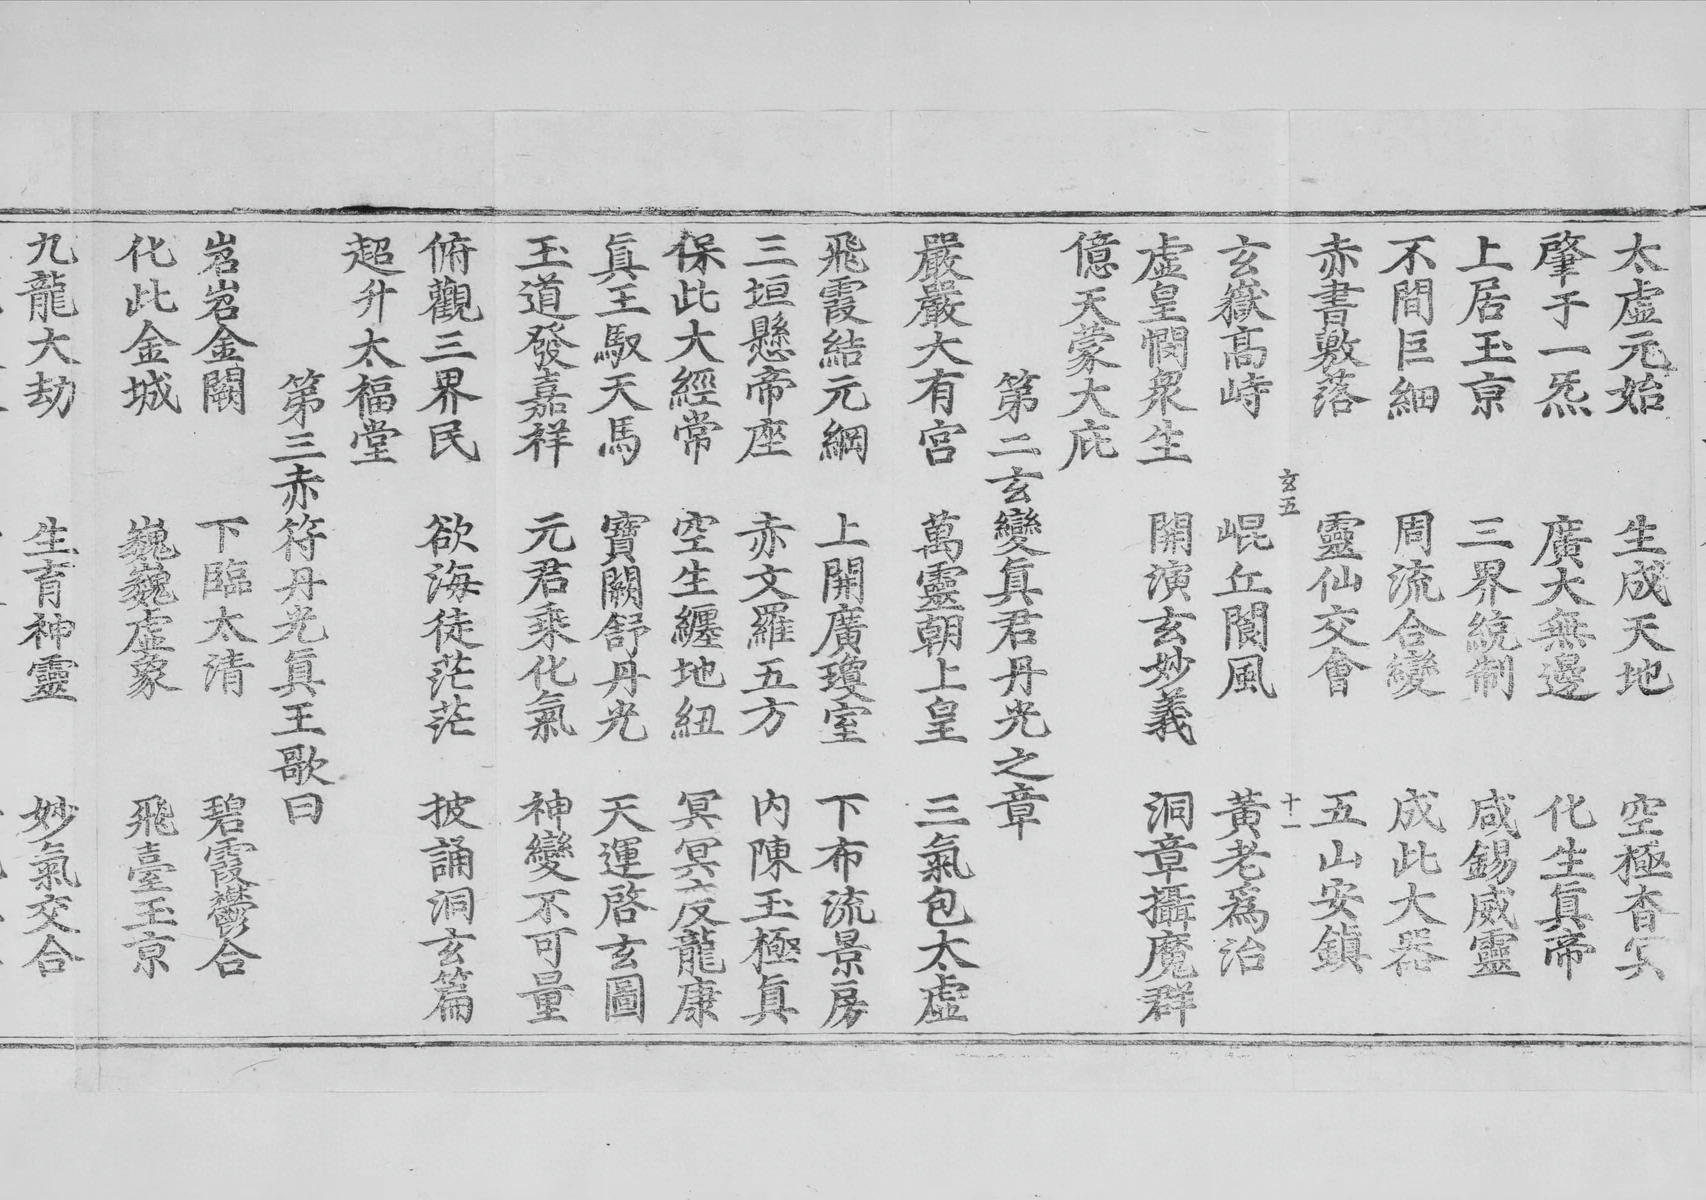 太虛元始　生成天地　空極杳冥
肇于一炁　廣大無邊　化生眞帝
上居玉京　三界統制　咸錫威靈
不間巨細　周流合變　成此大器
赤書敷落　靈仙交會　五山安鎮
玄五　十一
玄嶽高峙　崐丘閬風　黃老爲治
虛皇憫衆生　開演玄妙義　洞章攝魔群
億天蒙大庇
第二玄變眞君丹光之章
嚴嚴大有宮　萬靈朝上皇　三氣包太虛
飛霞結元綱　上開廣瓊室　下布流景房
三垣懸帝座　赤文羅五方　內陳玉極眞
保此大經常　空生纏地紐　冥冥反龍康
眞王馭天馬　寶闕舒丹光　天運啓玄圖
玉道發嘉祥　元君乘化氣　神變不可量
俯觀三界民　欲海徒茫茫　披誦洞玄篇
超升太福堂
第三赤符丹光眞王歌曰
岧岧金闕　下臨太清　碧霞鬱合
化此金城　巍巍虛象　飛臺玉京
九龍大劫　生育神靈　妙氣交合